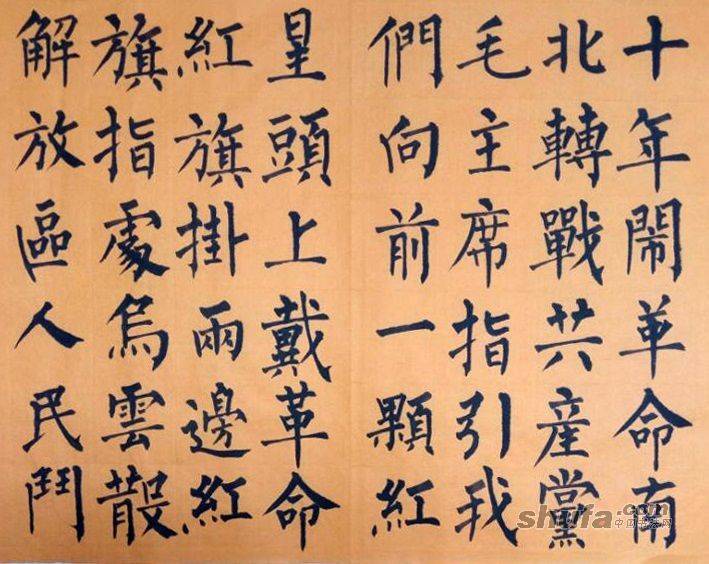 十年鬧革命南
北轉戰共產黨
毛主席指引我
們向前一顆紅
星頭上戴革命
紅旗掛兩邊紅
旗指處烏雲散
解放區人民鬥
shufa.com
中国书法网